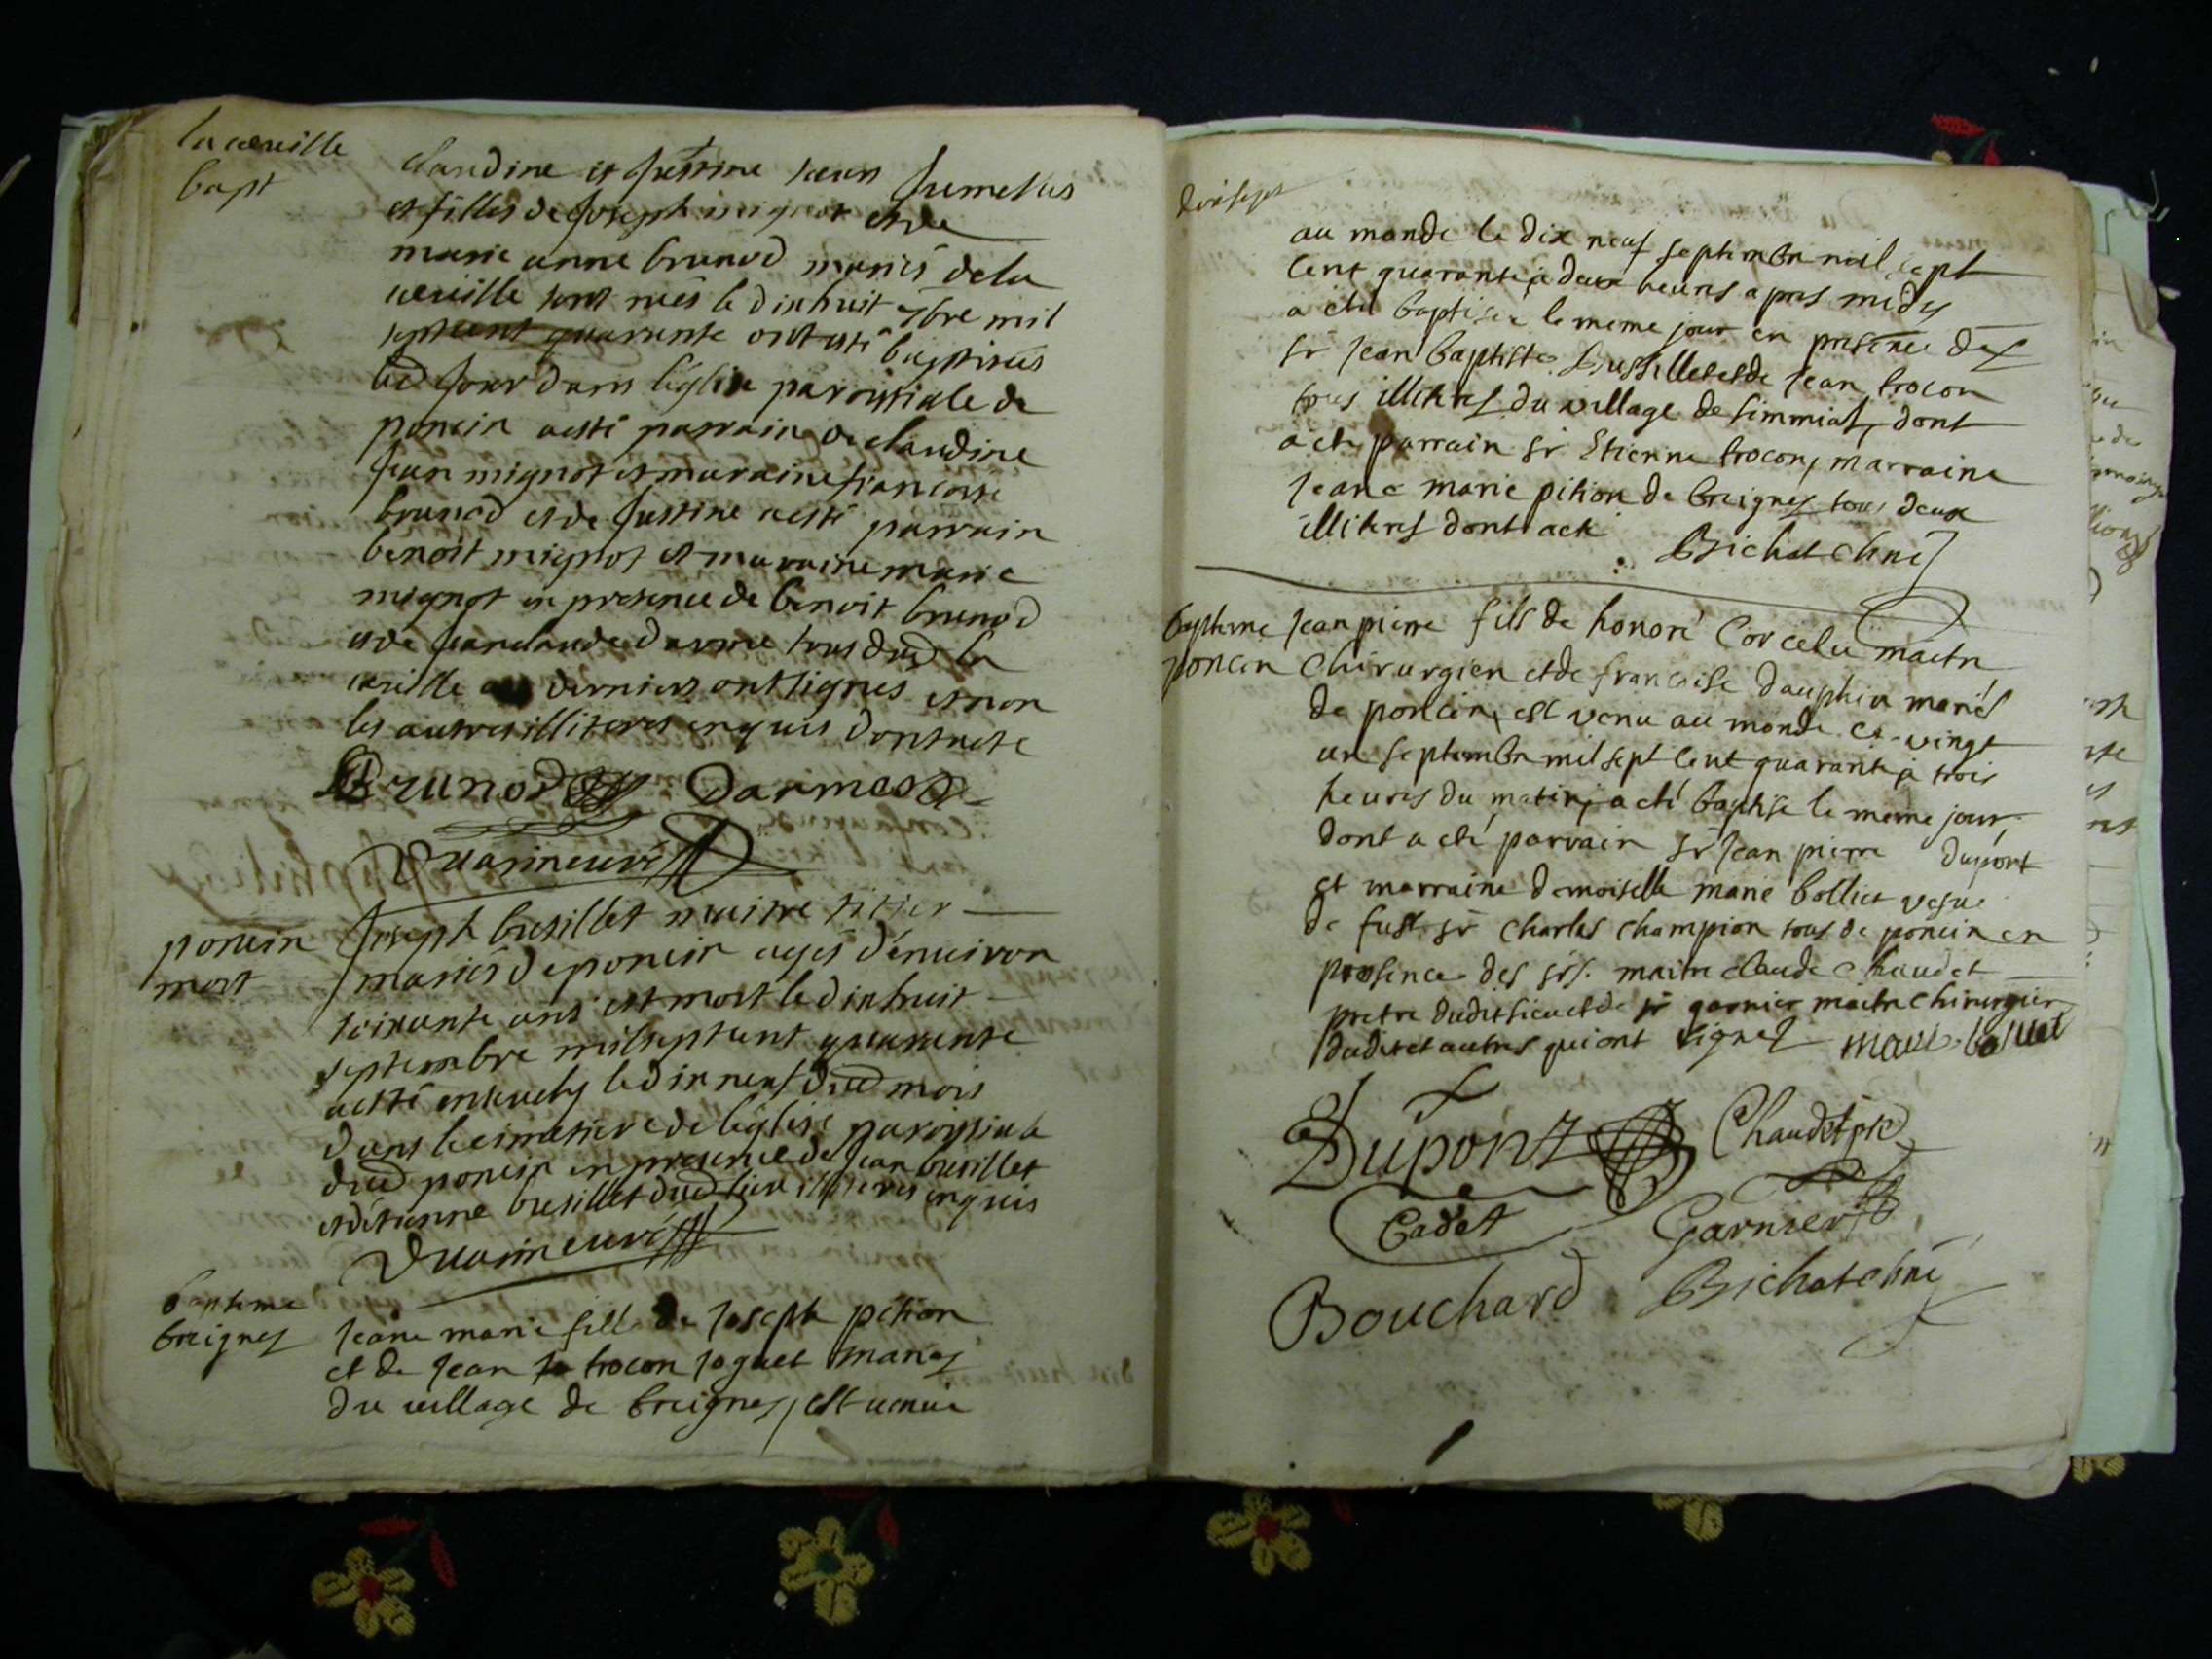 la cueuille
bapt
claudine et justine soeurs jumelles
et filles de joseph mignot et de
marie anne brunod mariés de la
cueuille sont nées le dixhuit 7bre mil
sept cent quarante ont esté baptisées
led jour dans l'église paroissiale de
poncin a esté parrain de claudine
jean mignot et maraine francoise
brunod et de justine a esté parrain
benoit mignot et maraine marie
mignot en presence de benoit brunod
et de jean claude darme tous dud la
cueille derniers ont signés et non
les autres illiterés enquis dont acte
Brunod Darmes
poncin
mort
joseph busillet maitre
mariés de poncin agés d'enuiron
soixante ans est mort le dixhuit
septembre mil sept cent quarante
a esté enseuely le dix neuf dud mois
dans le cimetiere de l'église paroissiale
dud poncin en presence de jean busillet
et d'etienne busillet dud lieu illiterés enquis
baptime
breignes
jeane marie fille de joseph pition
et de jean trocon joguet maries
du uillage de breignes, est uenue
dixsept
au monde le dix neuf septembre mil sept
cent quarante, a deux heures apres midy
a eté baptisée le meme jour en presence de
sr jean baptiste et de jean trocon
tous illiterés du village de simmiat, dont
a eté parrain sr Etienne trocon, marraine
jeane marie pition de breignes tous deux
illiterés dont acte Bichat
bapteme
poncin
jean pierre fils de honoré Corcelu maitre
Chirurgien et de francoise dauphin mariés
de poncin, est venu au monde ce vingt
un septembre mil sept cent quarante, a trois
heures du matin, a eté baptise le meme jour,
dont a eté parrain sr jean pierre dupont
et marraine demoiselle marie bolliet vesue
de fust sr Charles Champion tous de poncin en
presence des srs. maitre claude Chaudet
pretre dudit lieu et de sr garnier maitre chirurgien
dudit et autres qui ont signez marie boliiet
Dupont Chaudet ptre
Cadet Garnier
Bouchard Bichat